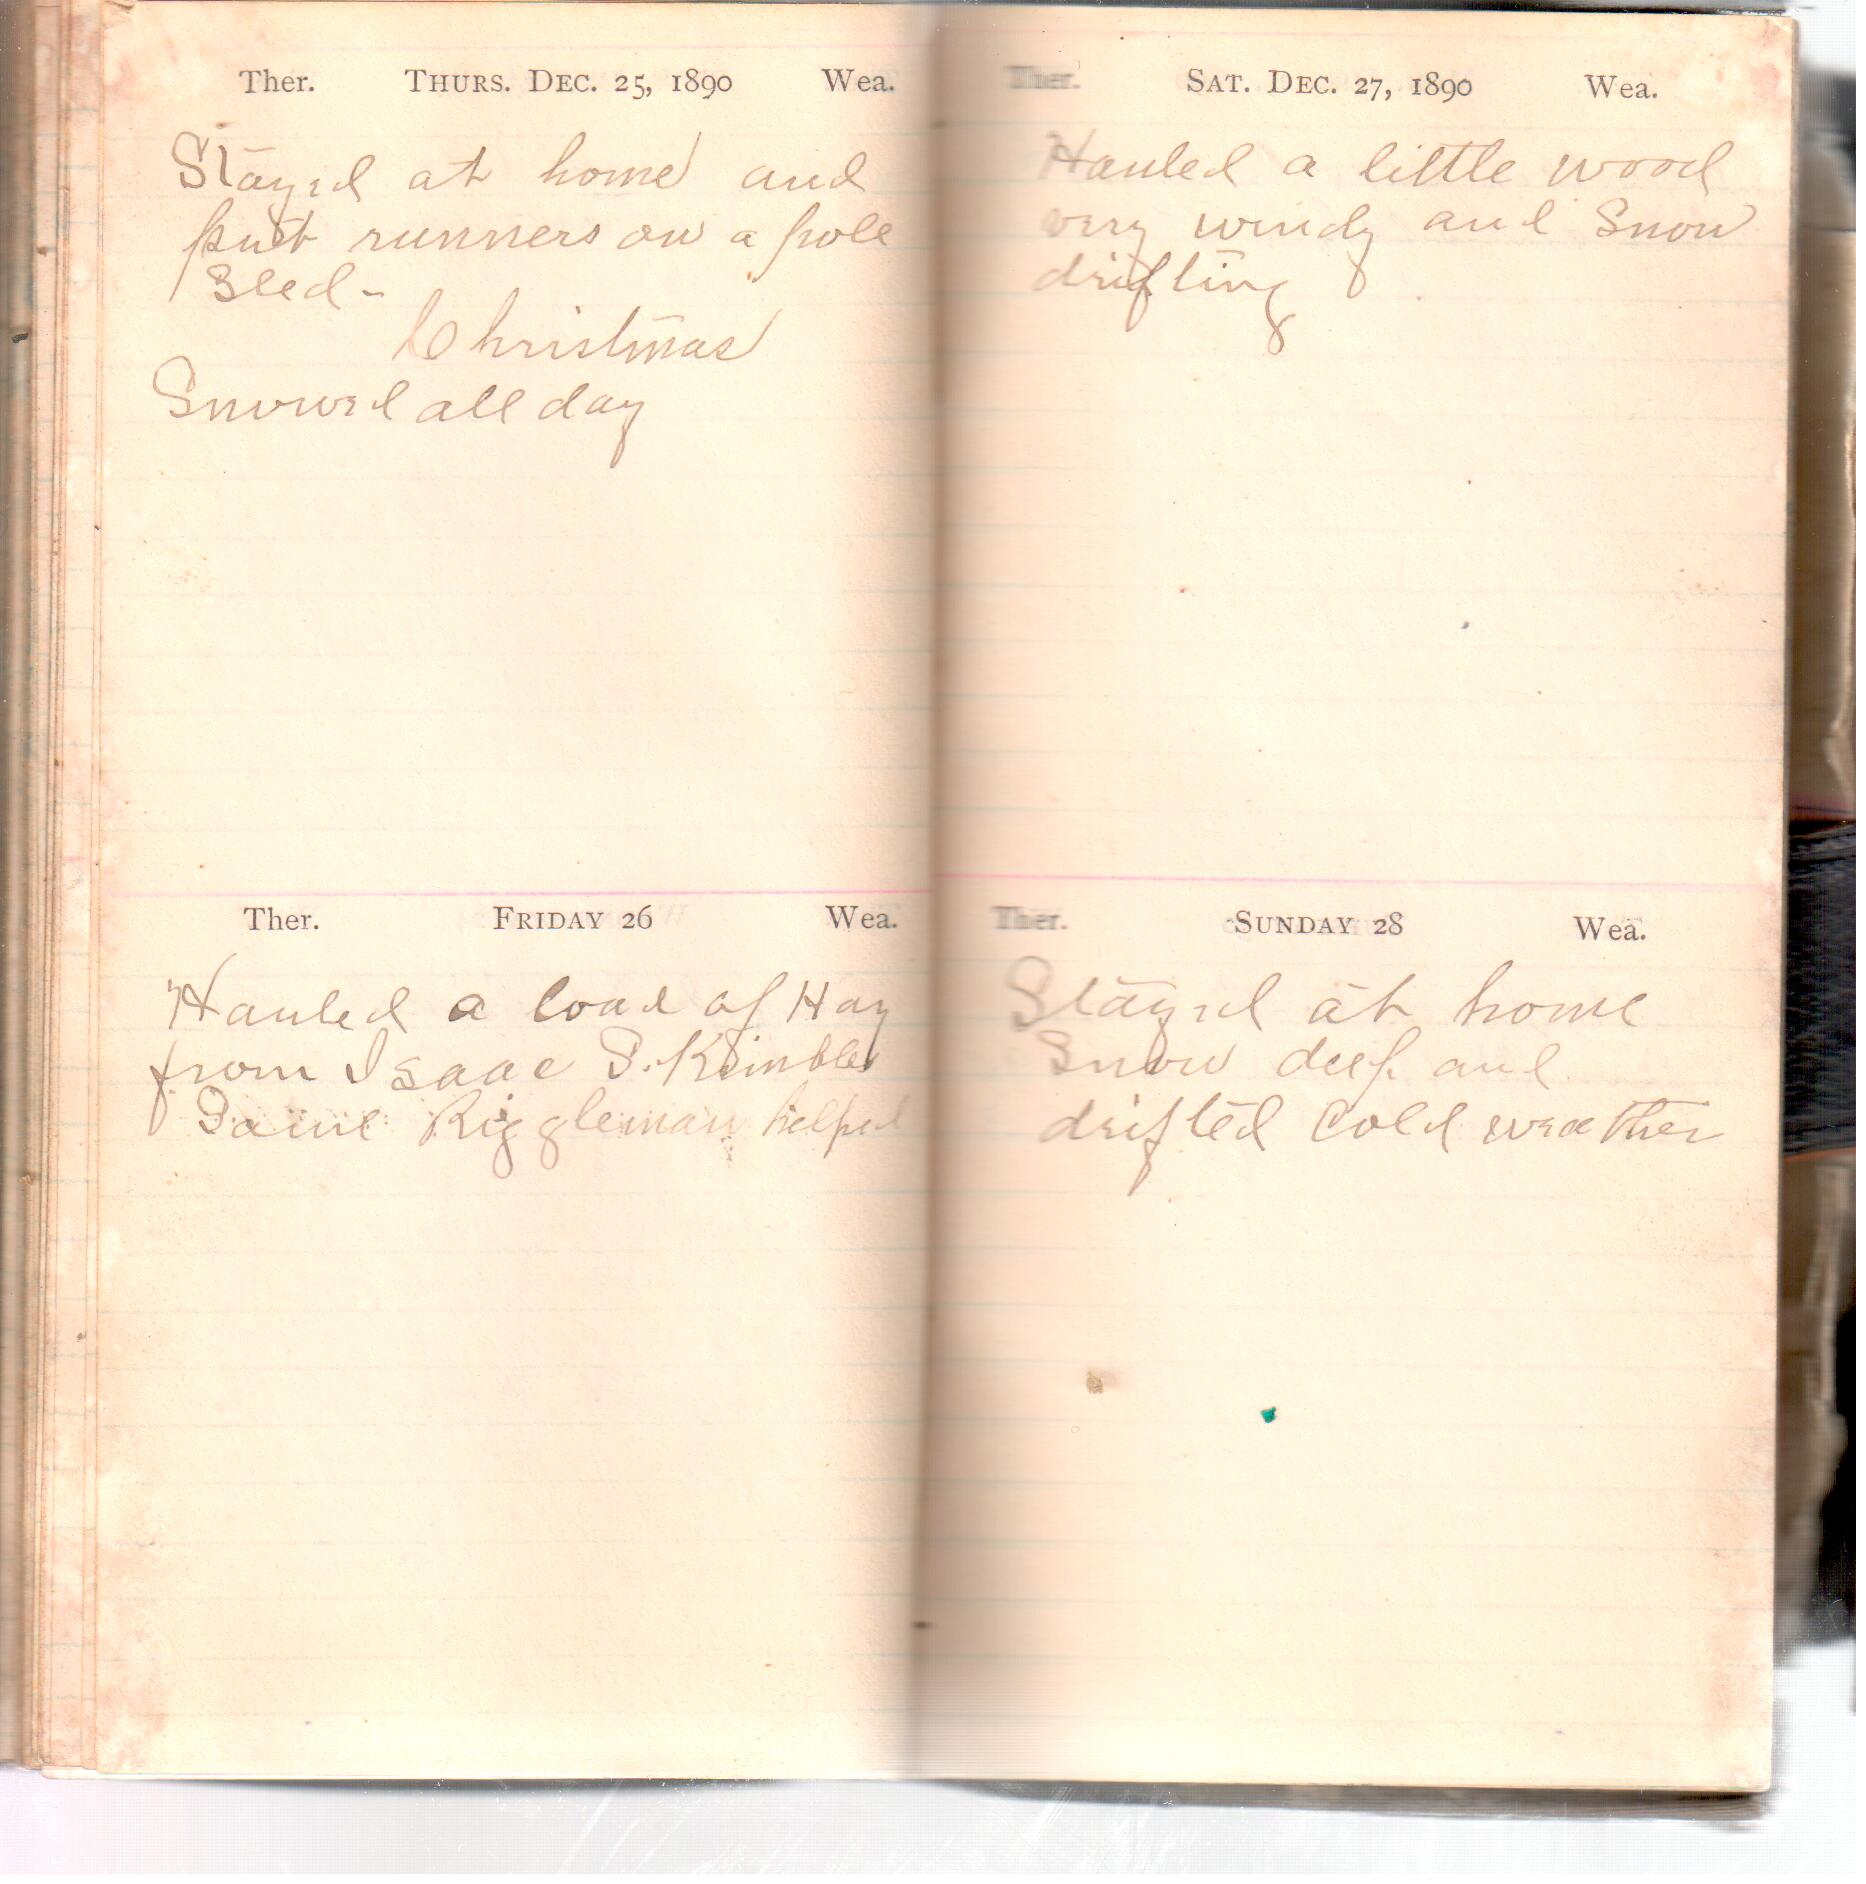 Ther. THURS. DEC. 25, 1890 Wea.
Stayed at home and
put runners on a pole
Sled-
Christmas
Snowed all day
Ther. FRIDAY 26 Wea.
Hauled a load of Hay
from Isaac S. Kimble
Riggleman helped
Ther. SAT. DEC. 27, 1890 Wea.
Hauled a little wood
very windy and Snow
drifting
Ther. SUNDAY 28 Wea.
Stayed at home
Snow deep and
drifted Cold weather